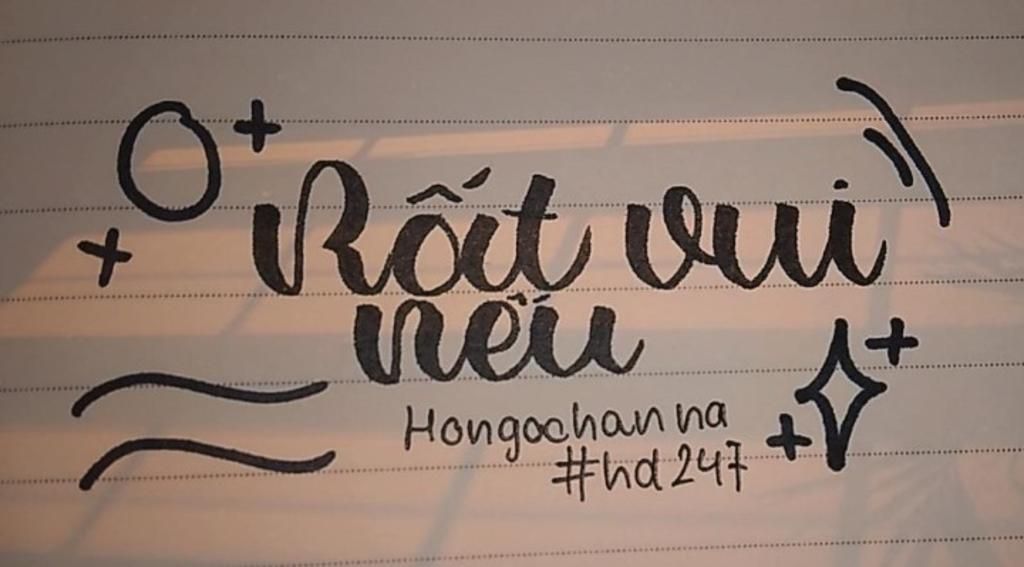 Rất vui
nếu
Hongochanna
#hd247